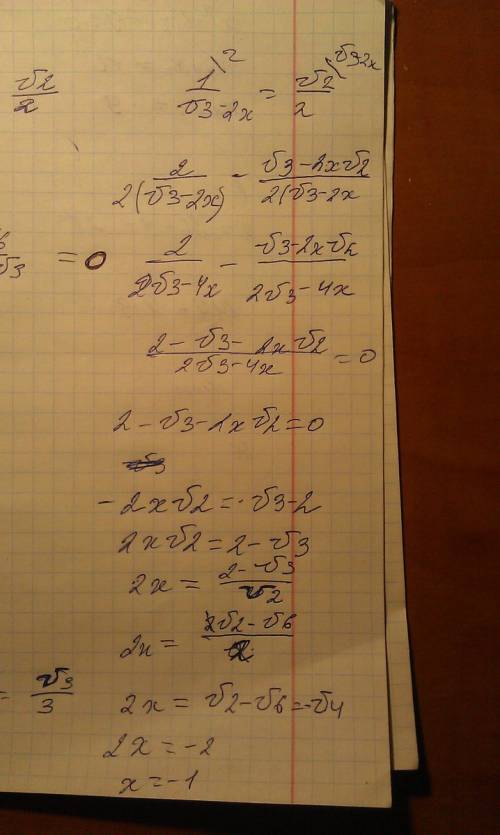 √2/2
1/(√3-2x) \2 = √2/2 /√3 2x
2/(2(√3-2x)) - (√3-2x√2)/(2(√3-2x
6/√3 = 0
2/(2√3-4x) - (√3-2x√2)/(2√3-4x)
(2-√3-2x√2)/(2√3-4x) = 0
2-√3-2x√2=0
-2x√2=-√3-2
2x√2=2-√3
2x = (2-√3)/√2
2x = (2√2-√6)/2
= √3/3
2x = √2-√6=-√4
2x=-2
x=-1